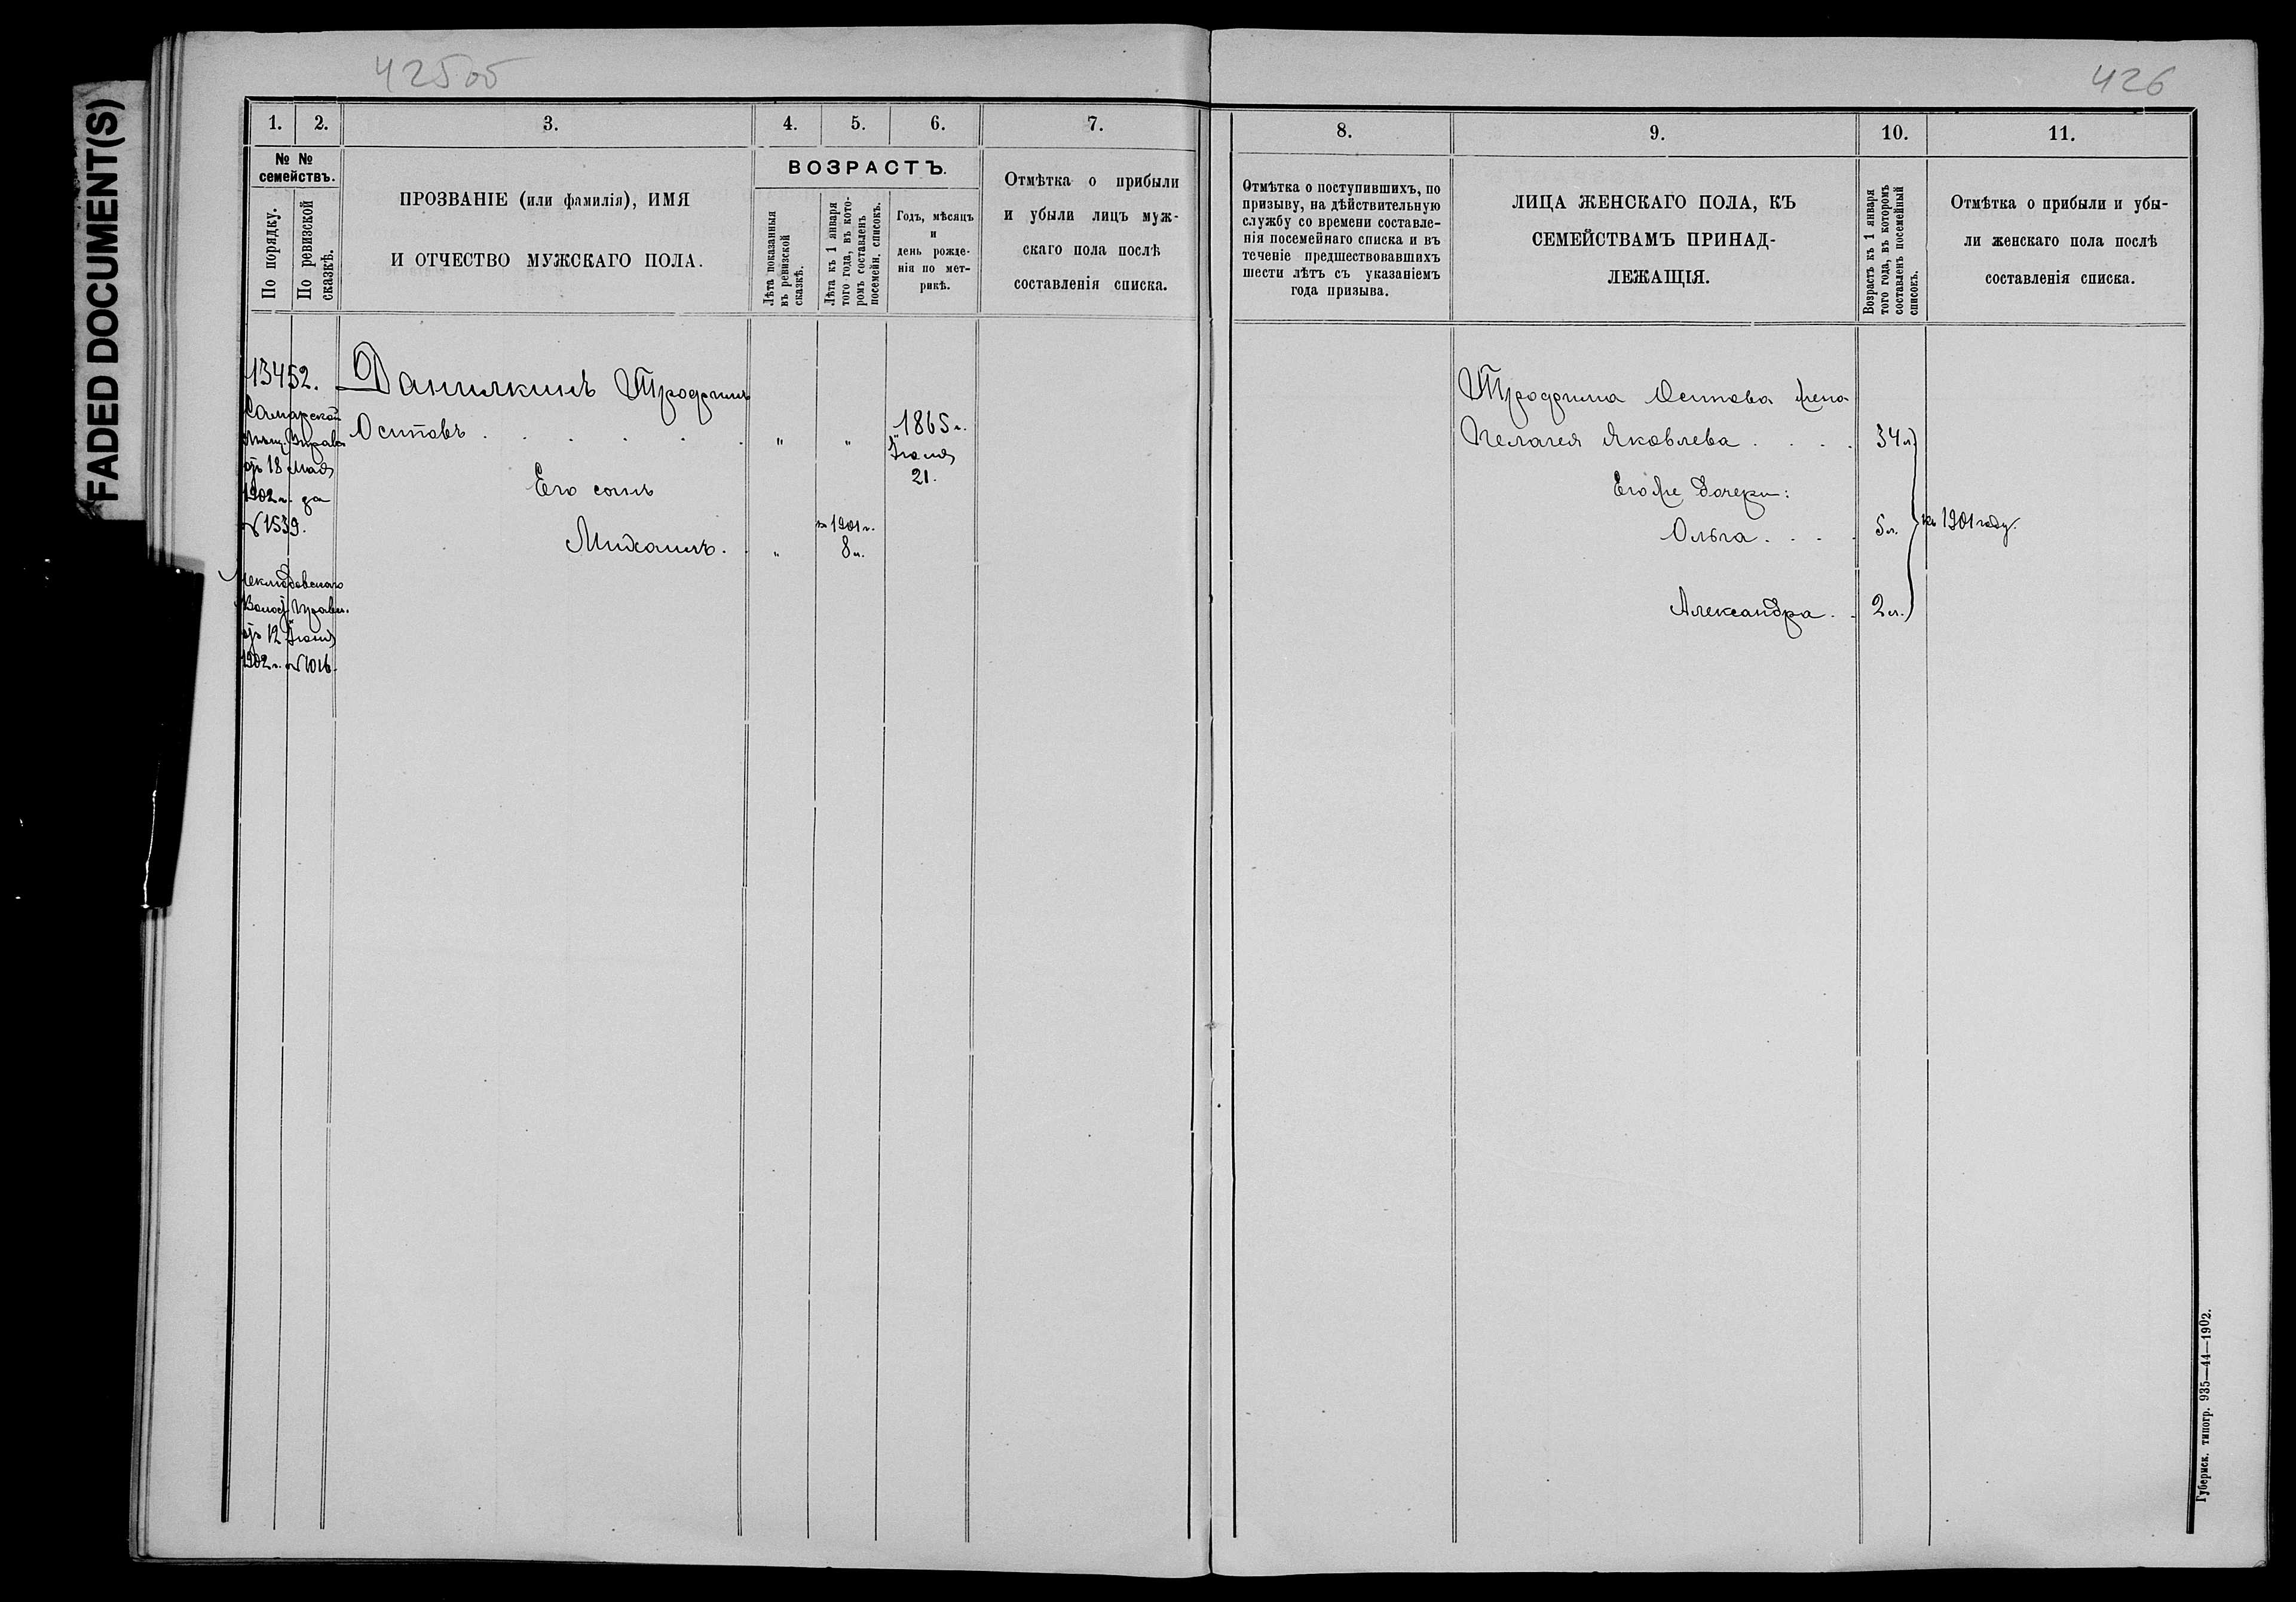 FADED DOCUMENT(S)
425об
426
1.
2.
3.
4.
5.
6.
7.
8.
9.
10.
11.
№ №
семействъ.
По порядку.
По ревизской
сказкѣ.
ПРОЗВАНІЕ (или фамилія), ИМЯ
И ОТЧЕСТВО МУЖСКАГО ПОЛА.
ВОЗРАСТЪ.
Лѣта показанныя
въ ревизской
сказкѣ.
Лѣта къ 1 января
того года, въ кото-
ромъ составленъ
посемейн. списокъ.
Годъ, мѣсяцъ
и
день рожде-
нія по мет-
рикѣ.
Отмѣтка о прибыли
и убыли лицъ муж-
скаго пола послѣ
составленія списка.
Отмѣтка о поступившихъ, по
призыву, на дѣйствительную
службу со времени составле-
нія посемейнаго списка и въ
теченіе предшествовавшихъ
шести лѣтъ съ указаніемъ
года призыва.
ЛИЦА ЖЕНСКАГО ПОЛА, КЪ
СЕМЕЙСТВАМЪ ПРИНАД-
ЛЕЖАЩІЯ.
Возрастъ къ 1 января
того года, въ которомъ
составленъ посемейный
списокъ.
Отмѣтка о прибыли и убы-
ли женскаго пола послѣ
составленія списка.
13452.
Самарской
Мѣщ. Управы
отъ 18 Мая
1902 г. за
№ 1539.
Неклюдовскаго
Волост. Правл.
отъ 12 Іюня
1902 г. № 1016.
Данилкинъ Трофимъ
Осиповъ . . . . . " " 1865 г.
Іюля
21.
Его сынъ
къ 1901 г.
Михаилъ . . " 8 л.
Трофима Осипова жена
Пелагея Яковлева . . . . 34 л.
Его же дочери:
Ольга . . . . 5 л. къ 1901 году.
Александра . . 2 л.
Губернск. типогр. 935—44—1902.